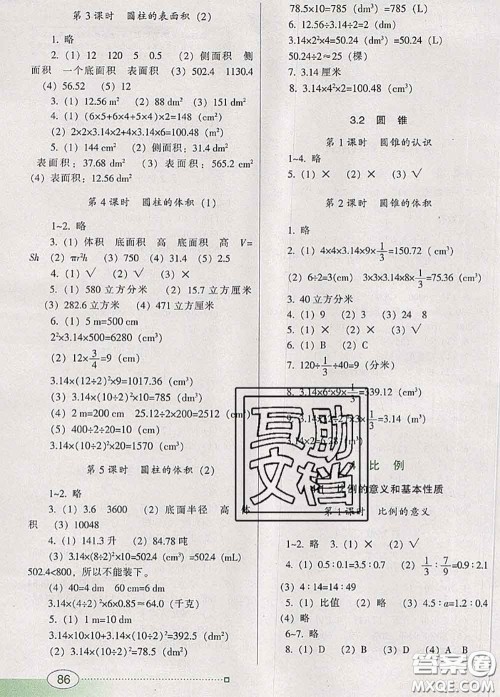 第 3 课时　圆柱的表面积 (2)
1. 略
2. (1) 12　120　5　0.5　(2) 侧面积　侧
面积　一个底面积　表面积　(3) 502.4　1130.4
(4) 56.52　(5) 12
3. (1) 12.56 m²　(2) 88 dm²　(3) 151 dm²
4. (1) (6×5+6×4+5×4)×2=148 (cm²)
(2) 2×2×3.14×2+4×3.14×6
=100.48 (m²)
5. (1) 144 cm²　(2) 侧面积：31.4 dm²
表面积：37.68 dm²　(3) 表面积：565.2 cm²
(4) 12.56 dm²
第 4 课时　圆柱的体积 (1)
1~2. 略
3. (1) 体积　底面积　高　底面积　高　V=
Sh　(2) πr²h　(3) 750　(4) 31.4　(5) 2.5
4. (1) √　(2) ×　(3) ×
5. (1) 580 立方分米　(2) 15.7 立方厘米
(3) 282.6 立方分米　(4) 471 立方厘米
6. (1) 5 m=500 cm
2²×3.14×500=6280 (cm³)
(2) 12×3/4=9 (cm)
3.14×(12÷2)²×9=1017.36 (cm³)
(3) 3.14×(10÷2)²×10=785 (cm³)
(4) 2 m=200 cm　25.12÷2×200=2512 (cm³)
(5) 400÷2÷2÷10=10 (cm)
3.14×(10÷2)²×20=1570 (cm³)
第 5 课时　圆柱的体积 (2)
1~2. 略
3. (1) 3.6　3600　(2) 底面半径　高　体
积　(3) 10048
4. (1) 141.3 升　(2) 84.78 吨
(3) 3.14×(8÷2)²×10=502.4 (cm³)=502.4 (mL)
502.4<800，所以不能装下。
(4) 3.14×(20÷2)²×30=9420 (cm³)
3.14×(4÷2)²×6×0.85=64.0 (千克)
5. (1) 1 m=10 dm
3.14×10×10+3.14×(10÷2)²=392.5 (dm²)
(2) 3.14×(10÷2)²=78.5 (dm²)
86
78.5×10=785 (dm³)　785 (L)
6. 50 dL=5 dm³
3.14×2²×4=50.24 (dm³)=50.24 (L)
50.24÷2≈25 (次)
7. 3.14 厘米
8. 3.14×4²×2=100.48 (cm³)
3.2　圆　锥
第 1 课时　圆锥的认识
1~4. 略
5. (1) ×　(2) ×　(3) √
第 2 课时　圆锥的体积
1. 略
2. (1) 4×4×3.14×9×1/3=150.72 (cm³)
(2) 6÷2=3 (cm)　3×3×3.14×8×1/3=75.36 (cm³)
3. 40 立方分米
4. (1) 9　(2) 24　(3) 15
5. (1) ×　(2) ×　(3) √
6. (1) B　(2) A　(3) C
7. 120÷1/3÷40=9 (分米)
8. 3.14×6²×9×1/3=339.12 (cm³)
比 例
比例的意义和基本性质
第 1 课时　比例的意义
1~2. 略　3. (1) ×　(2) ×　(3) ×
4. (1) 0.5∶0.1=3.5∶0.7　(2) 1/3∶7/9=0.9∶2.1
(3) 4∶14=14∶49
5. (1) 比值　(2) 略　(3) 4.5∶a=1.2∶0.4
(4) 略
6~7. 略
8. (1) D　(2) B　(3) B　(4) C
互助
文档
答案圈
MXQE.COM